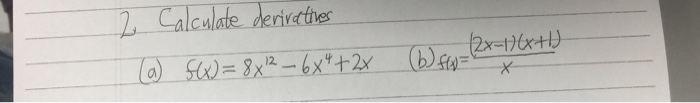 2, Calculate derivatives
(a) f(x) = 8x¹² - 6x⁴ + 2x (b) f(x) = (2x-1)(x+1) / x